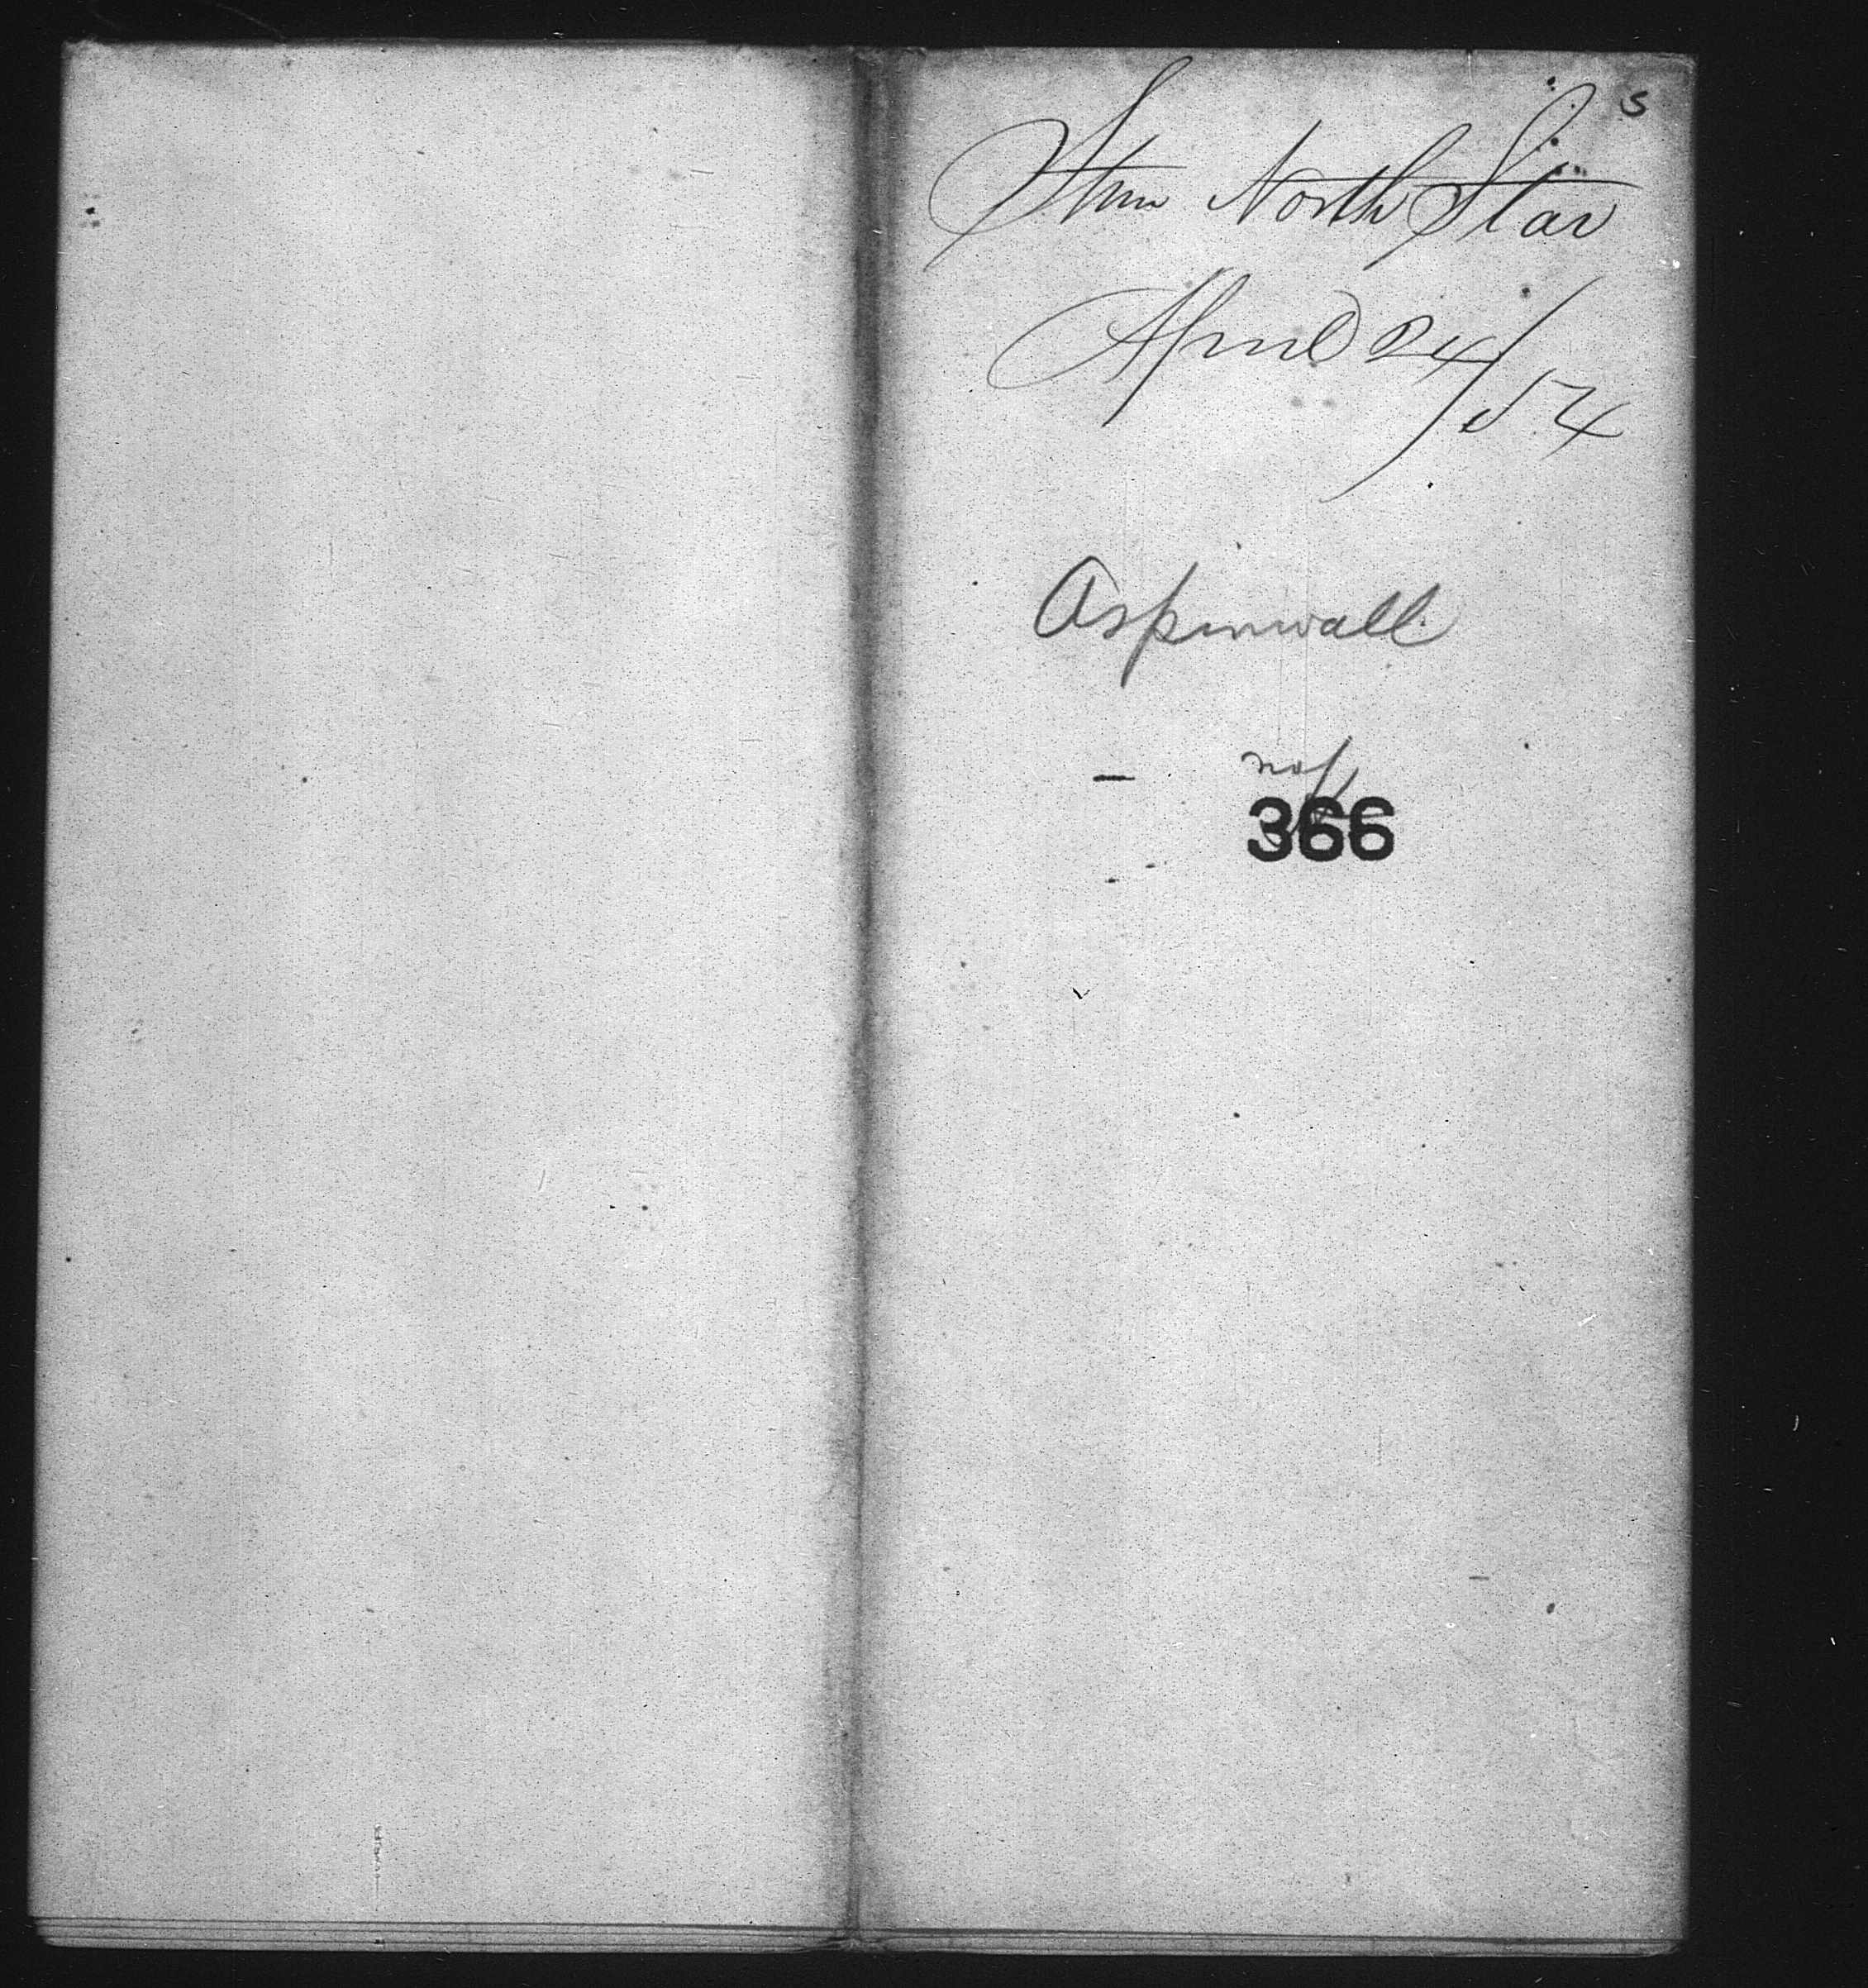 5
Stmr North Star
April 24/54
Aspinwall
366